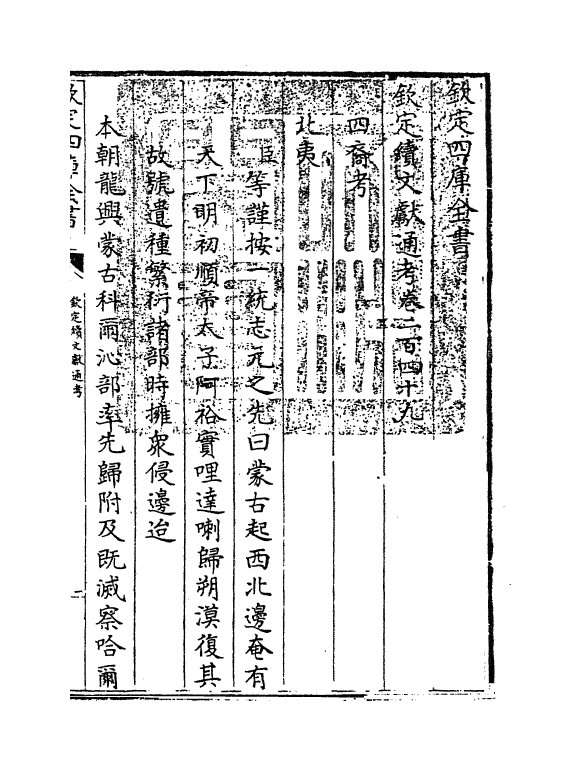 欽定四庫全書
欽定續文獻通考卷二百四十九
四裔考
北夷
臣等謹按一統志元之先曰蒙古起西北邊奄有
天下明初順帝太子阿裕實哩達喇歸朔漠復其
故號遺種繁衍諸部時擁衆侵邊迨
本朝龍興蒙古科爾沁部率先歸附及既滅察哈爾
欽定四庫全書
欽定續文獻通考